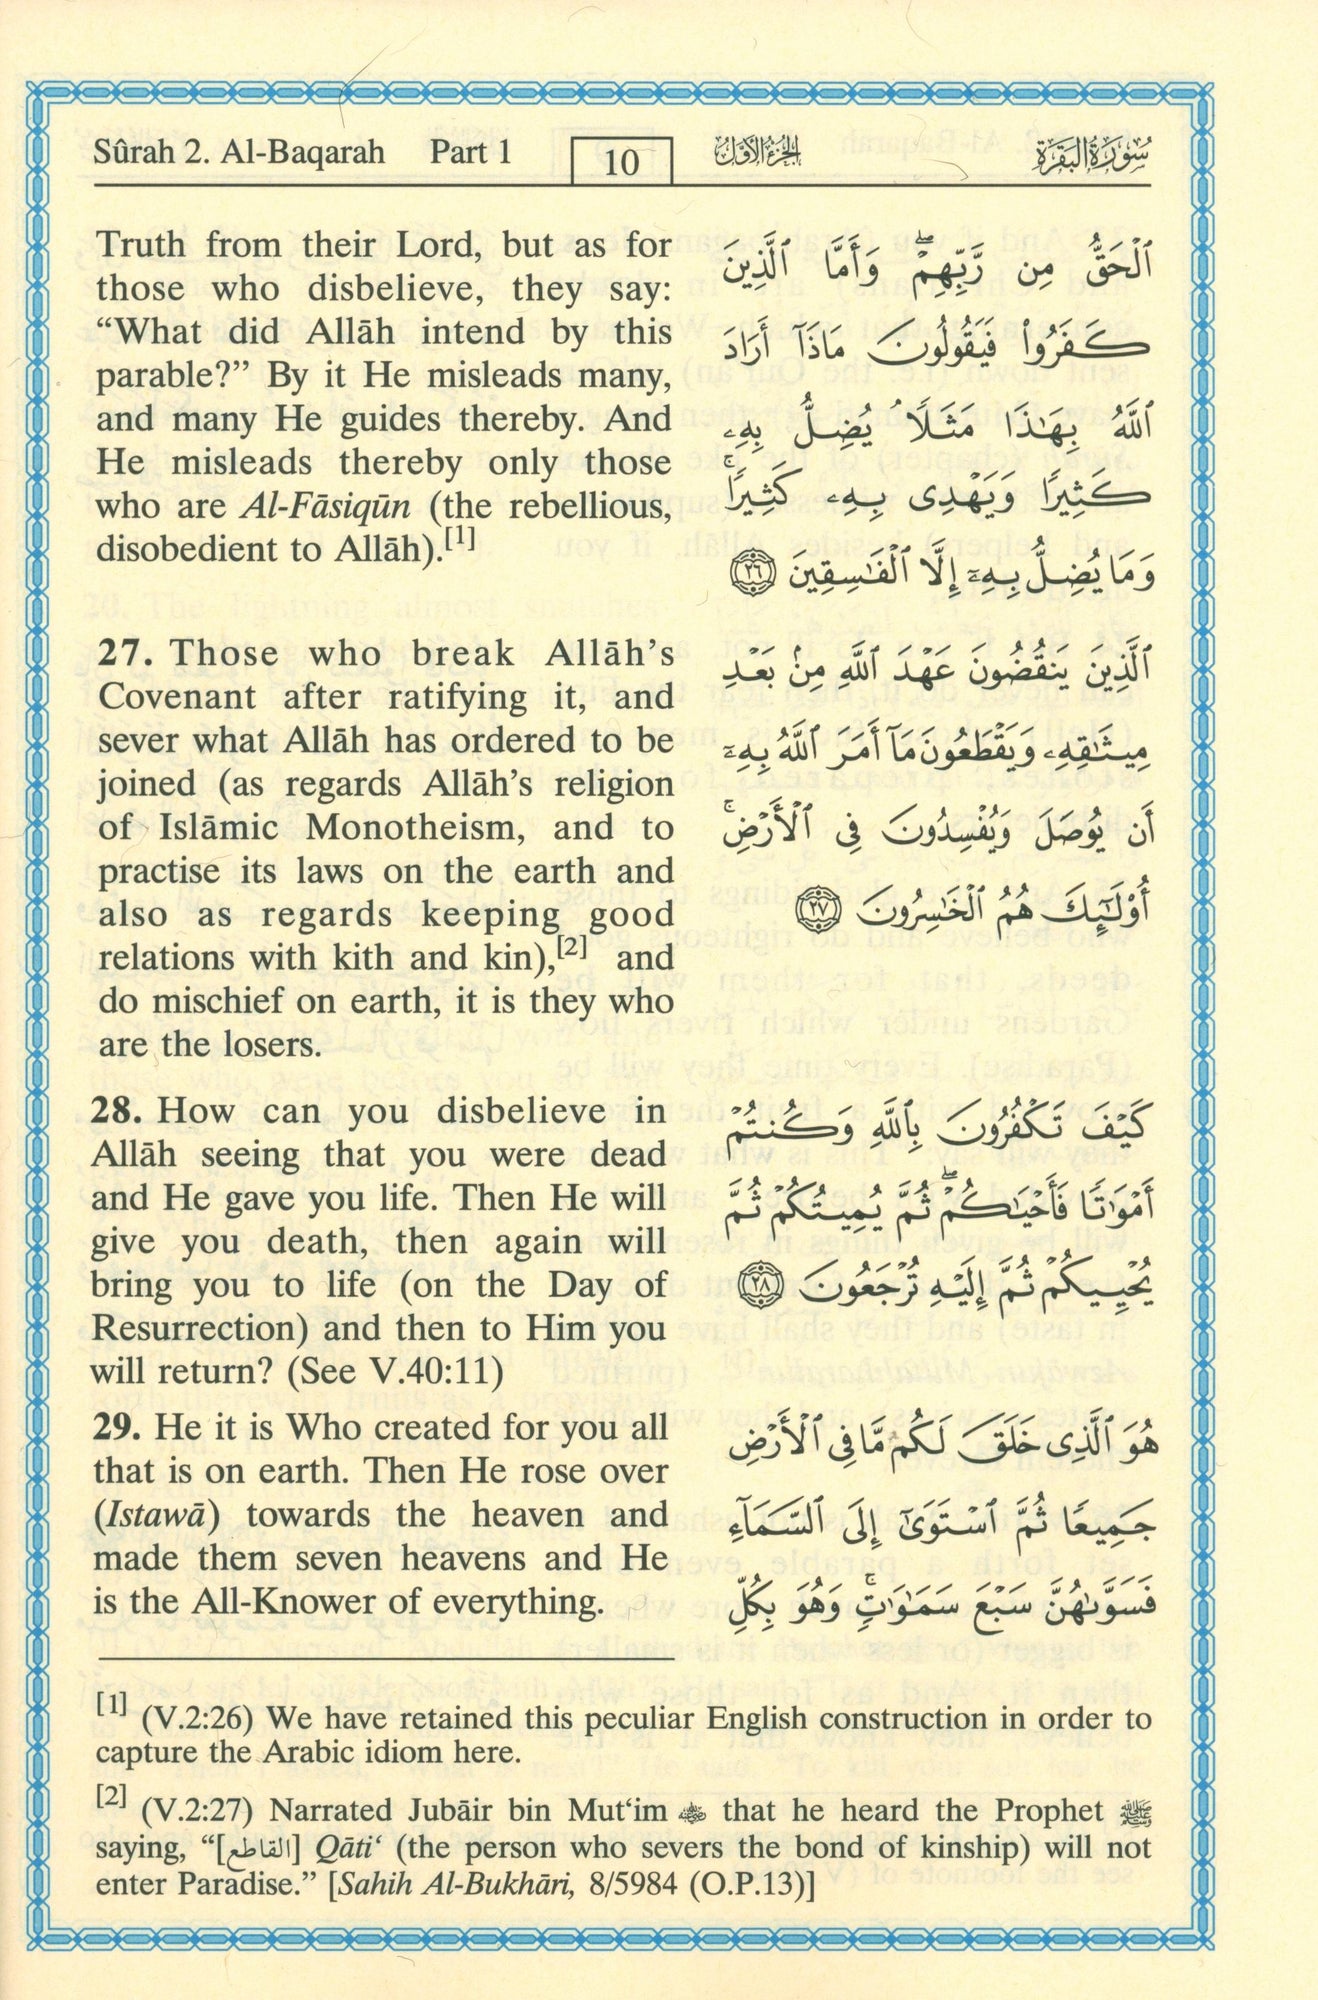 Sûrah 2. Al-Baqarah Part 1 10 الجزء الأول سورة البقرة
Truth from their Lord, but as for
those who disbelieve, they say:
“What did Allāh intend by this
parable?” By it He misleads many,
and many He guides thereby. And
He misleads thereby only those
who are Al-Fāsiqūn (the rebellious,
disobedient to Allāh).[1]
ٱلْحَقُّ مِن رَّبِّهِمْ ۖ وَأَمَّا ٱلَّذِينَ
كَفَرُوا۟ فَيَقُولُونَ مَاذَآ أَرَادَ
ٱللَّهُ بِهَـٰذَا مَثَلًا ۘ يُضِلُّ بِهِۦ
كَثِيرًا وَيَهْدِى بِهِۦ كَثِيرًا ۚ
وَمَا يُضِلُّ بِهِۦٓ إِلَّا ٱلْفَـٰسِقِينَ ٢٦
27. Those who break Allāh’s
Covenant after ratifying it, and
sever what Allāh has ordered to be
joined (as regards Allāh’s religion
of Islāmic Monotheism, and to
practise its laws on the earth and
also as regards keeping good
relations with kith and kin),[2] and
do mischief on earth, it is they who
are the losers.
ٱلَّذِينَ يَنقُضُونَ عَهْدَ ٱللَّهِ مِنۢ بَعْدِ
مِيثَـٰقِهِۦ وَيَقْطَعُونَ مَآ أَمَرَ ٱللَّهُ بِهِۦٓ
أَن يُوصَلَ وَيُفْسِدُونَ فِى ٱلْأَرْضِ ۚ
أُو۟لَـٰٓئِكَ هُمُ ٱلْخَـٰسِرُونَ ٢٧
28. How can you disbelieve in
Allāh seeing that you were dead
and He gave you life. Then He will
give you death, then again will
bring you to life (on the Day of
Resurrection) and then to Him you
will return? (See V.40:11)
كَيْفَ تَكْفُرُونَ بِٱللَّهِ وَكُنتُمْ
أَمْوَٰتًا فَأَحْيَـٰكُمْ ۖ ثُمَّ يُمِيتُكُمْ ثُمَّ
يُحْيِيكُمْ ثُمَّ إِلَيْهِ تُرْجَعُونَ ٢٨
29. He it is Who created for you all
that is on earth. Then He rose over
(Istawā) towards the heaven and
made them seven heavens and He
is the All-Knower of everything.
هُوَ ٱلَّذِى خَلَقَ لَكُم مَّا فِى ٱلْأَرْضِ
جَمِيعًا ثُمَّ ٱسْتَوَىٰٓ إِلَى ٱلسَّمَآءِ
فَسَوَّىٰهُنَّ سَبْعَ سَمَـٰوَٰتٍ ۚ وَهُوَ بِكُلِّ
[1] (V.2:26) We have retained this peculiar English construction in order to
capture the Arabic idiom here.
[2] (V.2:27) Narrated Jubāir bin Mut‘im رضي الله عنه that he heard the Prophet ﷺ
saying, “[القاطع] Qāti‘ (the person who severs the bond of kinship) will not
enter Paradise.” [Sahih Al-Bukhāri, 8/5984 (O.P.13)]